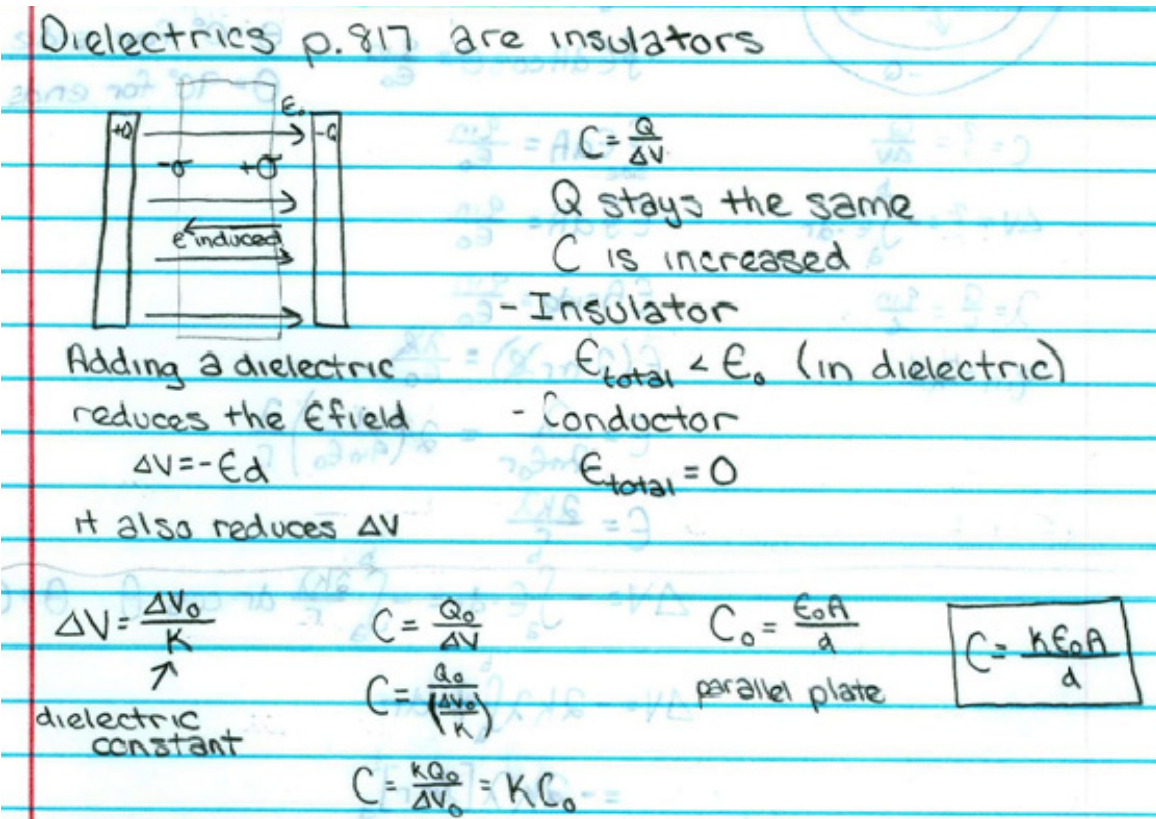 Dielectrics p.817 are insulators
+Q E₀ -Q
-σ +σ
E induced
C = Q/ΔV
Q stays the same
C is increased
- Insulator
E_total < E₀ (in dielectric)
- Conductor
E_total = 0
Adding a dielectric
reduces the E field
ΔV = -Ed
it also reduces ΔV
ΔV = ΔV₀/K
dielectric
constant
C = Q₀/ΔV
C = Q₀/(ΔV₀/K)
C = KQ₀/ΔV₀ = KC₀
C₀ = ε₀A/d
parallel plate
C = Kε₀A/d